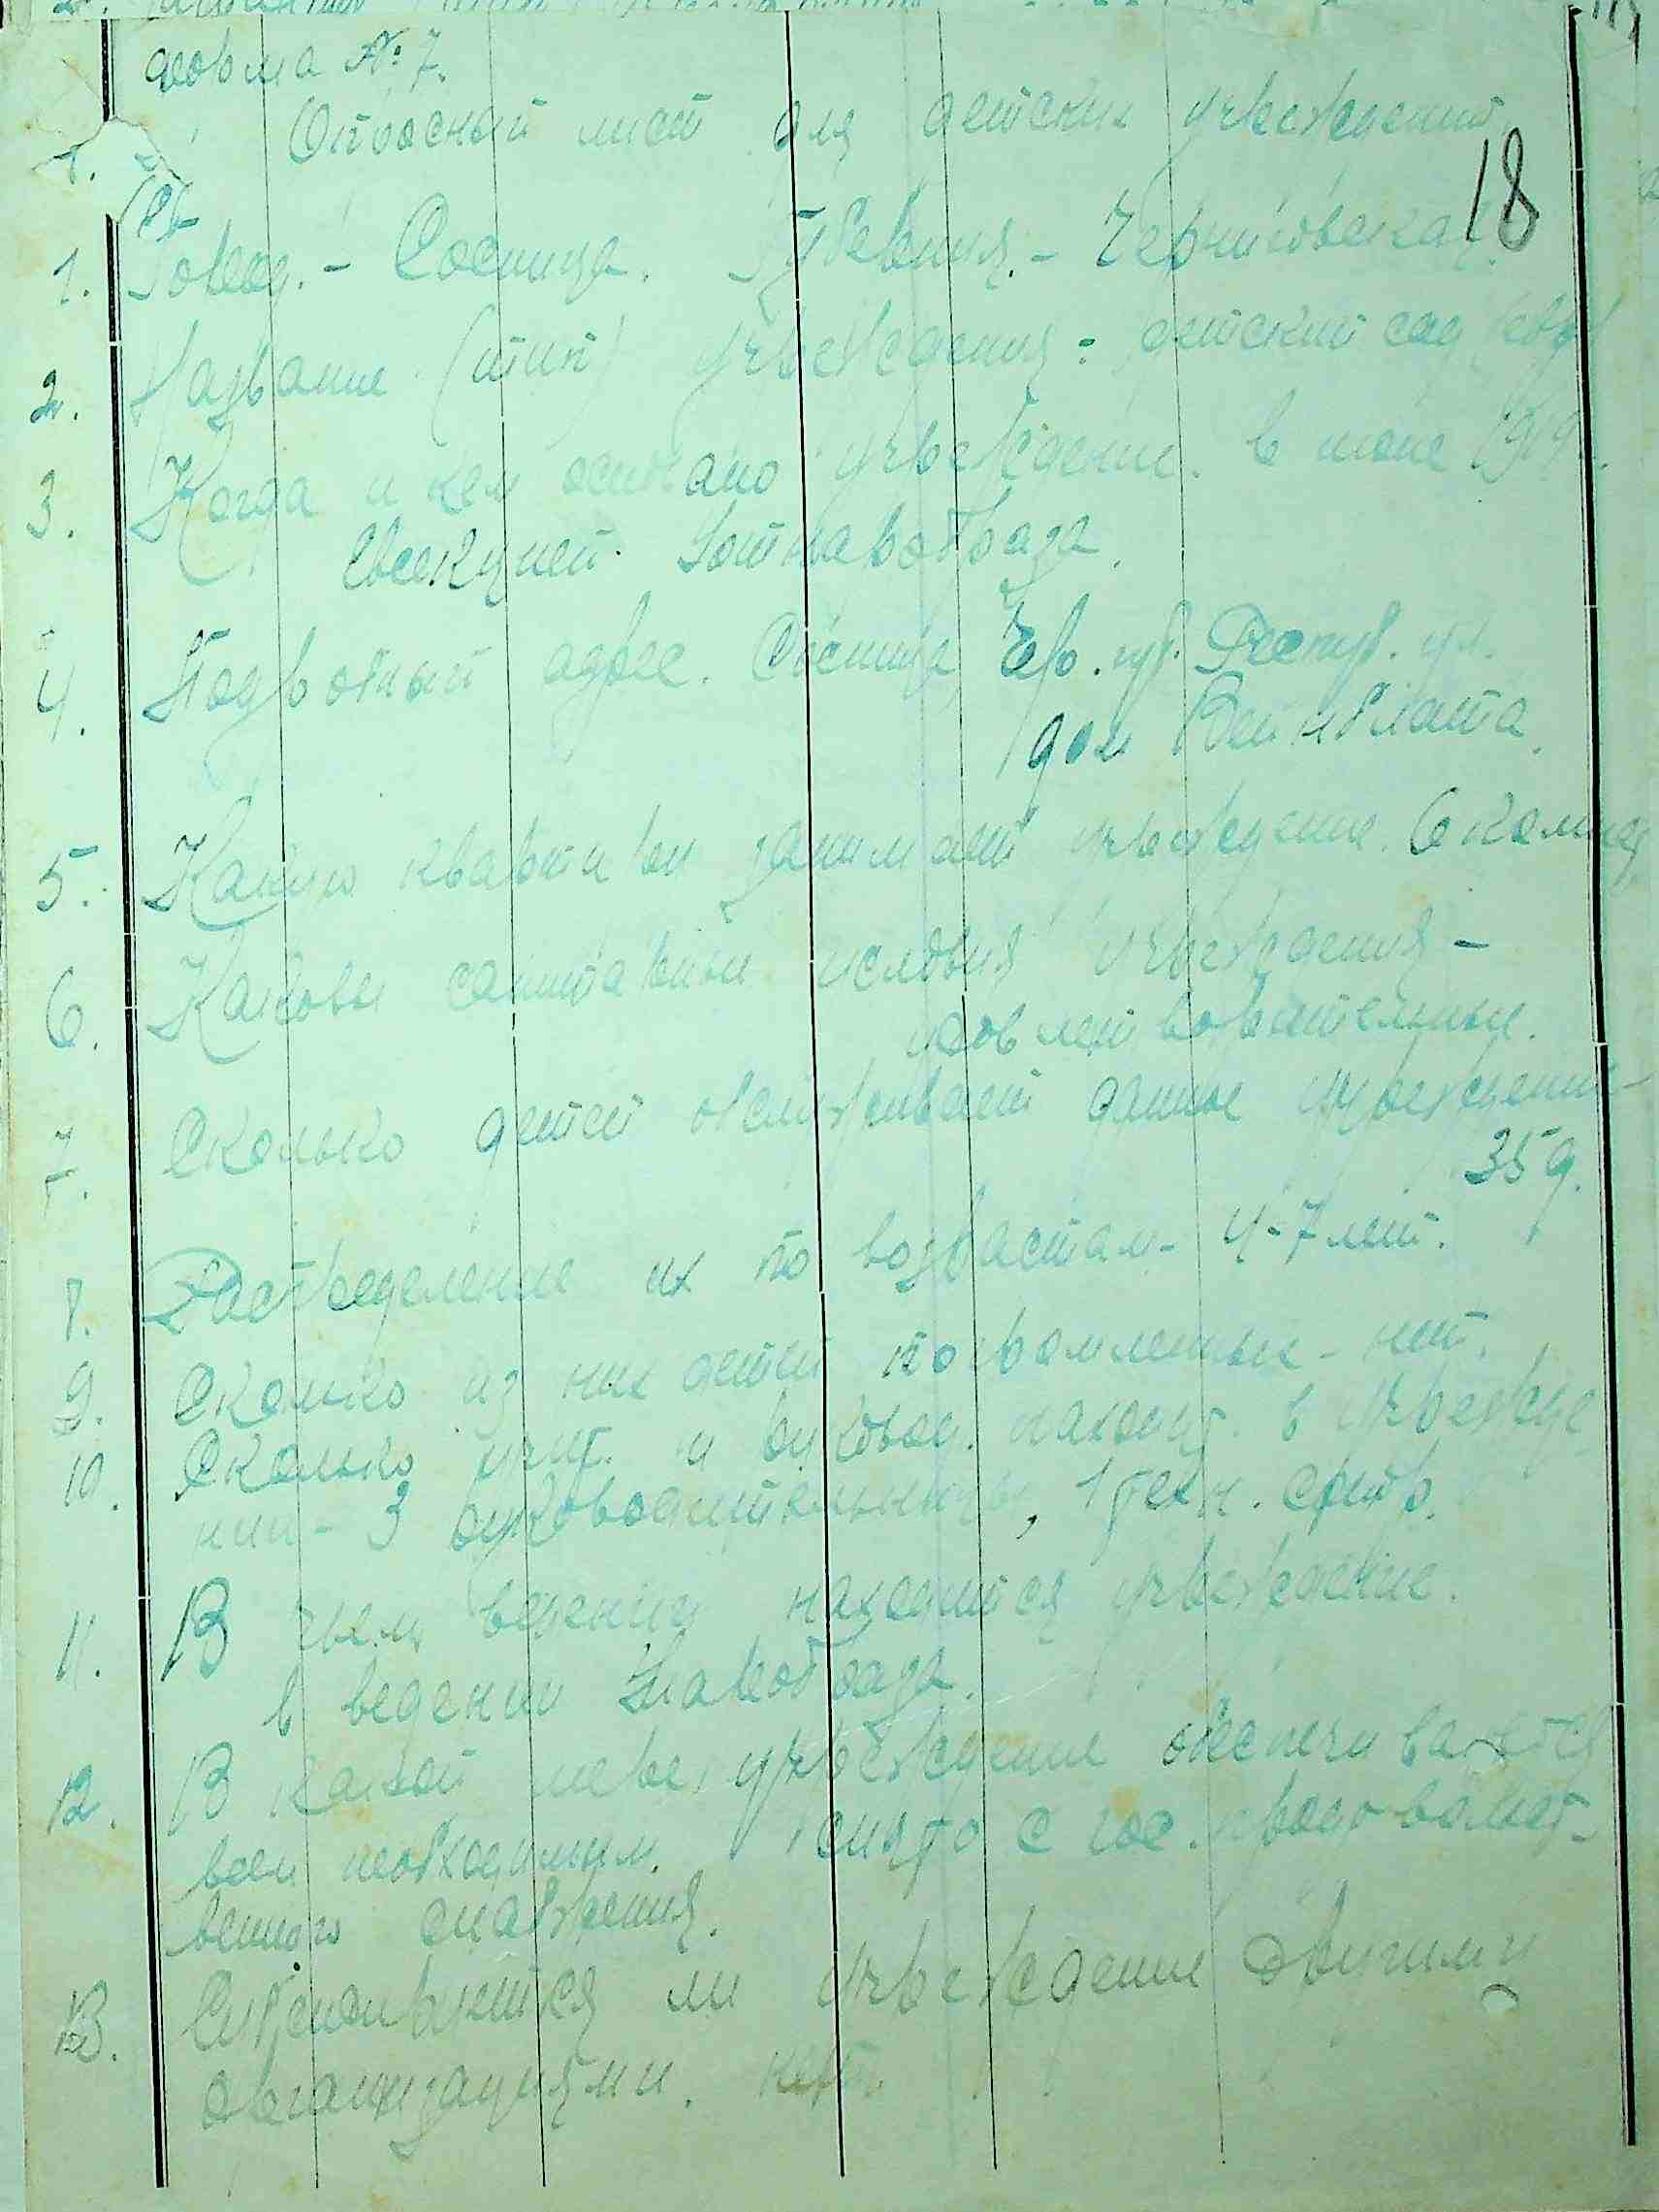 форма № 7.
Опросный лист для детских учреждений.
18
1. Город. - Сосница. Губерния. - Черниговская.
2. Название (тип) учреждения - детский сад
3. Когда и кем основано учреждение. в июне 1919
секцией Наробраза.
4. Подробный адрес. Сосница Чер. губ. Респуб. ул.
дом Вейнблата.
5. Какую квартиру занимает учреждение. 6 комнат
6. Каковы санитарные условия учреждения -
удовлетворительные.
7. Сколько детей обслуживает данное учреждение -
35 д.
8. Распределение их по возрастам - 4-7 лет.
9. Сколько из них детей - нет.
10. Сколько и руковод. находит. в учрежде
нии - 3 руководительницы, 1 техн.
11. В чьем ведении находится учреждение.
в ведении Наробраза.
12. В какой мере учреждение обеспечивается
всем необходимым. снято с гос.
венного снабжения.
13. Субсидируется ли учреждение другими
организациями. нет.